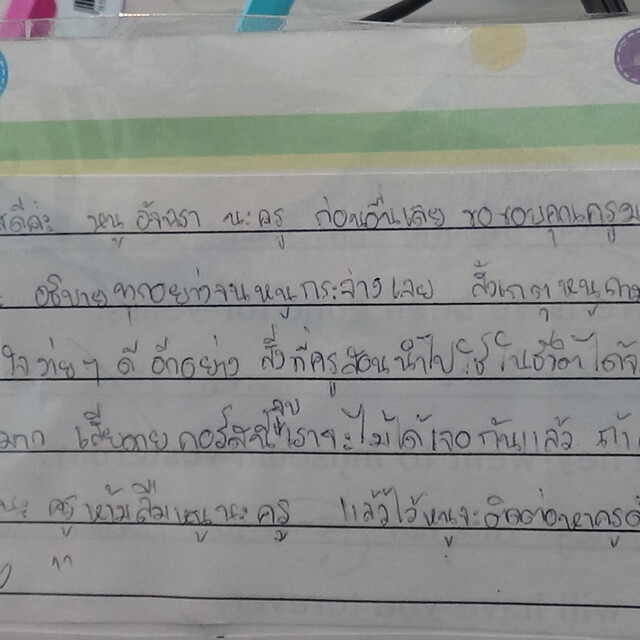 สดีค่ะ หนู อัจฉรา นะครู ก่อนอื่นเลย ขอขอบคุณครูม
อธิบายทุกอย่างจนหนูกระจ่างเลย สังเกตุหนูถาม
ใจง่ายๆ ดี อีกอย่าง สิ่งที่ครูสอนนำไปใช้ในชีวิตได้จ
มาก เสียดายคอร์สนี้จบเราจะไม่ได้เจอกันแล้ว ถ้า
นะ ครูห้ามลืมหนูนะครู แล้วไว้หนูจะติดต่อหาครู
^^